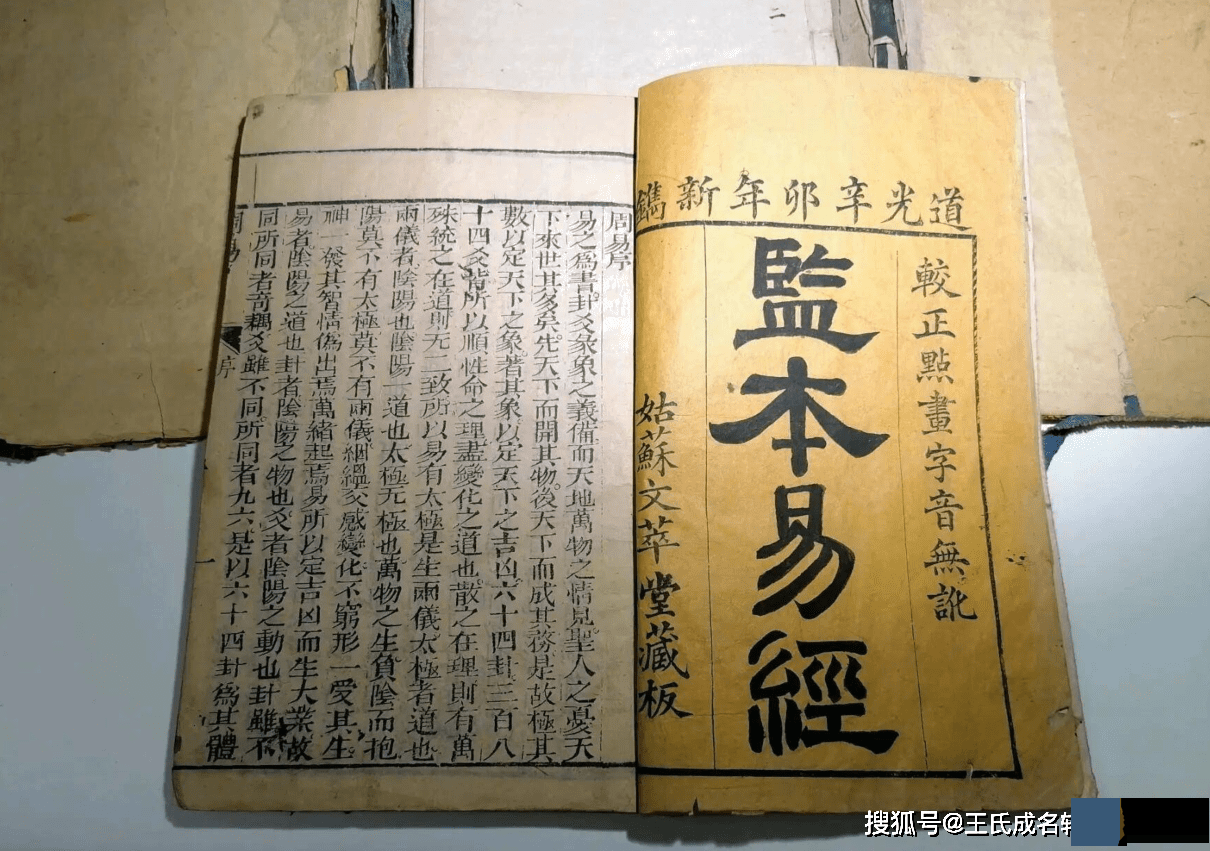 道光辛卯年新鐫
較正點畫字音無訛
監本易經
姑蘇文萃堂藏板
周易序
易之為書卦爻彖象之義備而天地萬物之情見聖人之憂天
下來世其至矣先天下而開其物後天下而成其務是故極其
數以定天下之象著其象以定天下之吉凶六十四卦三百八
十四爻皆所以順性命之理盡變化之道也散之在理則有萬
殊統之在道則无二致所以易有太極是生兩儀太極者道也
兩儀者陰陽也陰陽一道也太極无極也萬物之生負陰而抱
陽莫不有太極莫不有兩儀絪縕交感變化不窮形一受其生
神一發其智情偽出焉萬緒起焉易所以定吉凶而生大業故
易者陰陽之道也卦者陰陽之物也爻者陰陽之動也卦雖不
同所同者奇耦爻雖不同所同者九六是以六十四卦為其體
周易
序
一
搜狐号@王氏成名